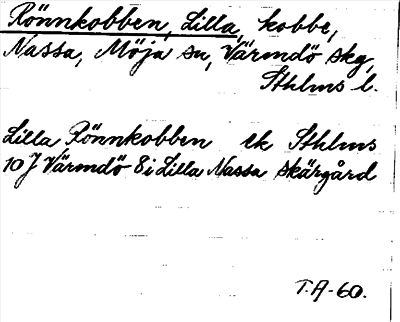 Rönnkobben, Lilla, kobbe,
Nassa, Möja sn, Värmdö skg,
Sthlms l.
Lilla Rönnkobben ek Sthlms
10 J Värmdö 8 i Lilla Nassa skärgård
T.A-60.